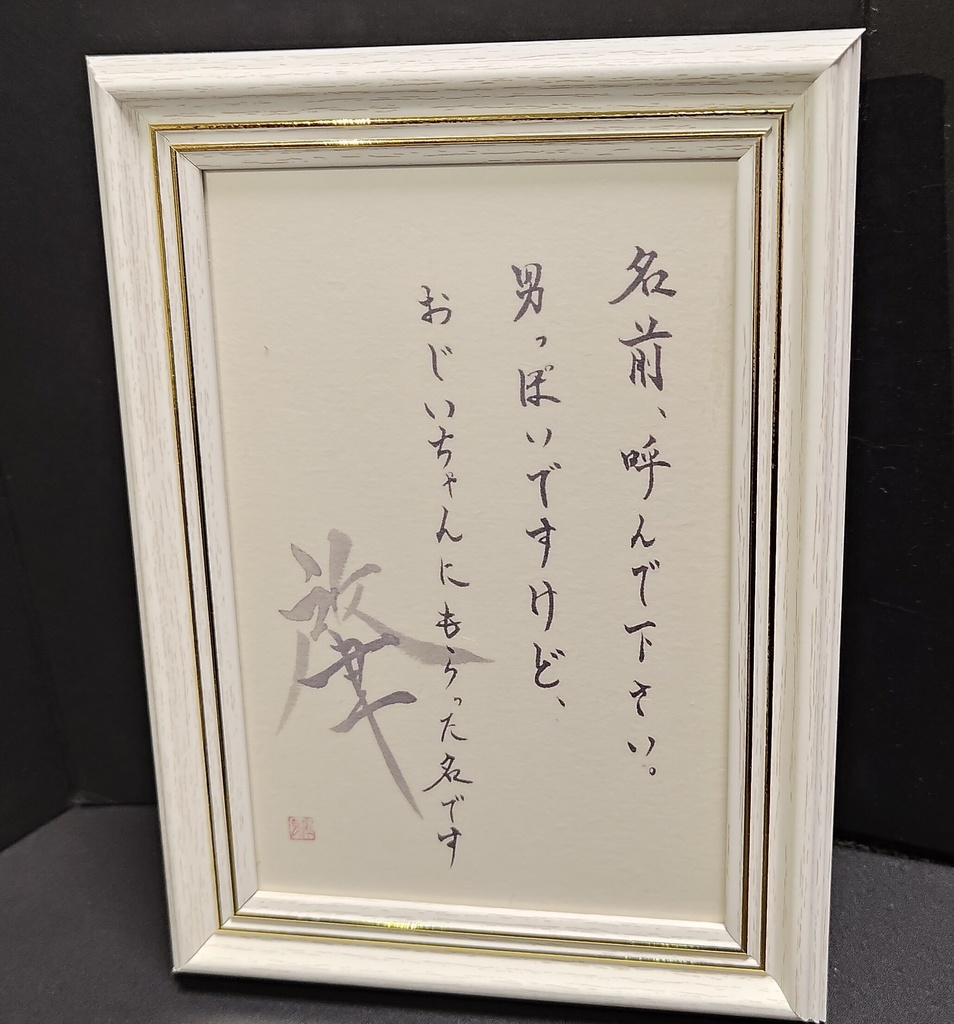 名前、呼んで下さい。
男っぽいですけど、
おじいちゃんにもらった名です
肇